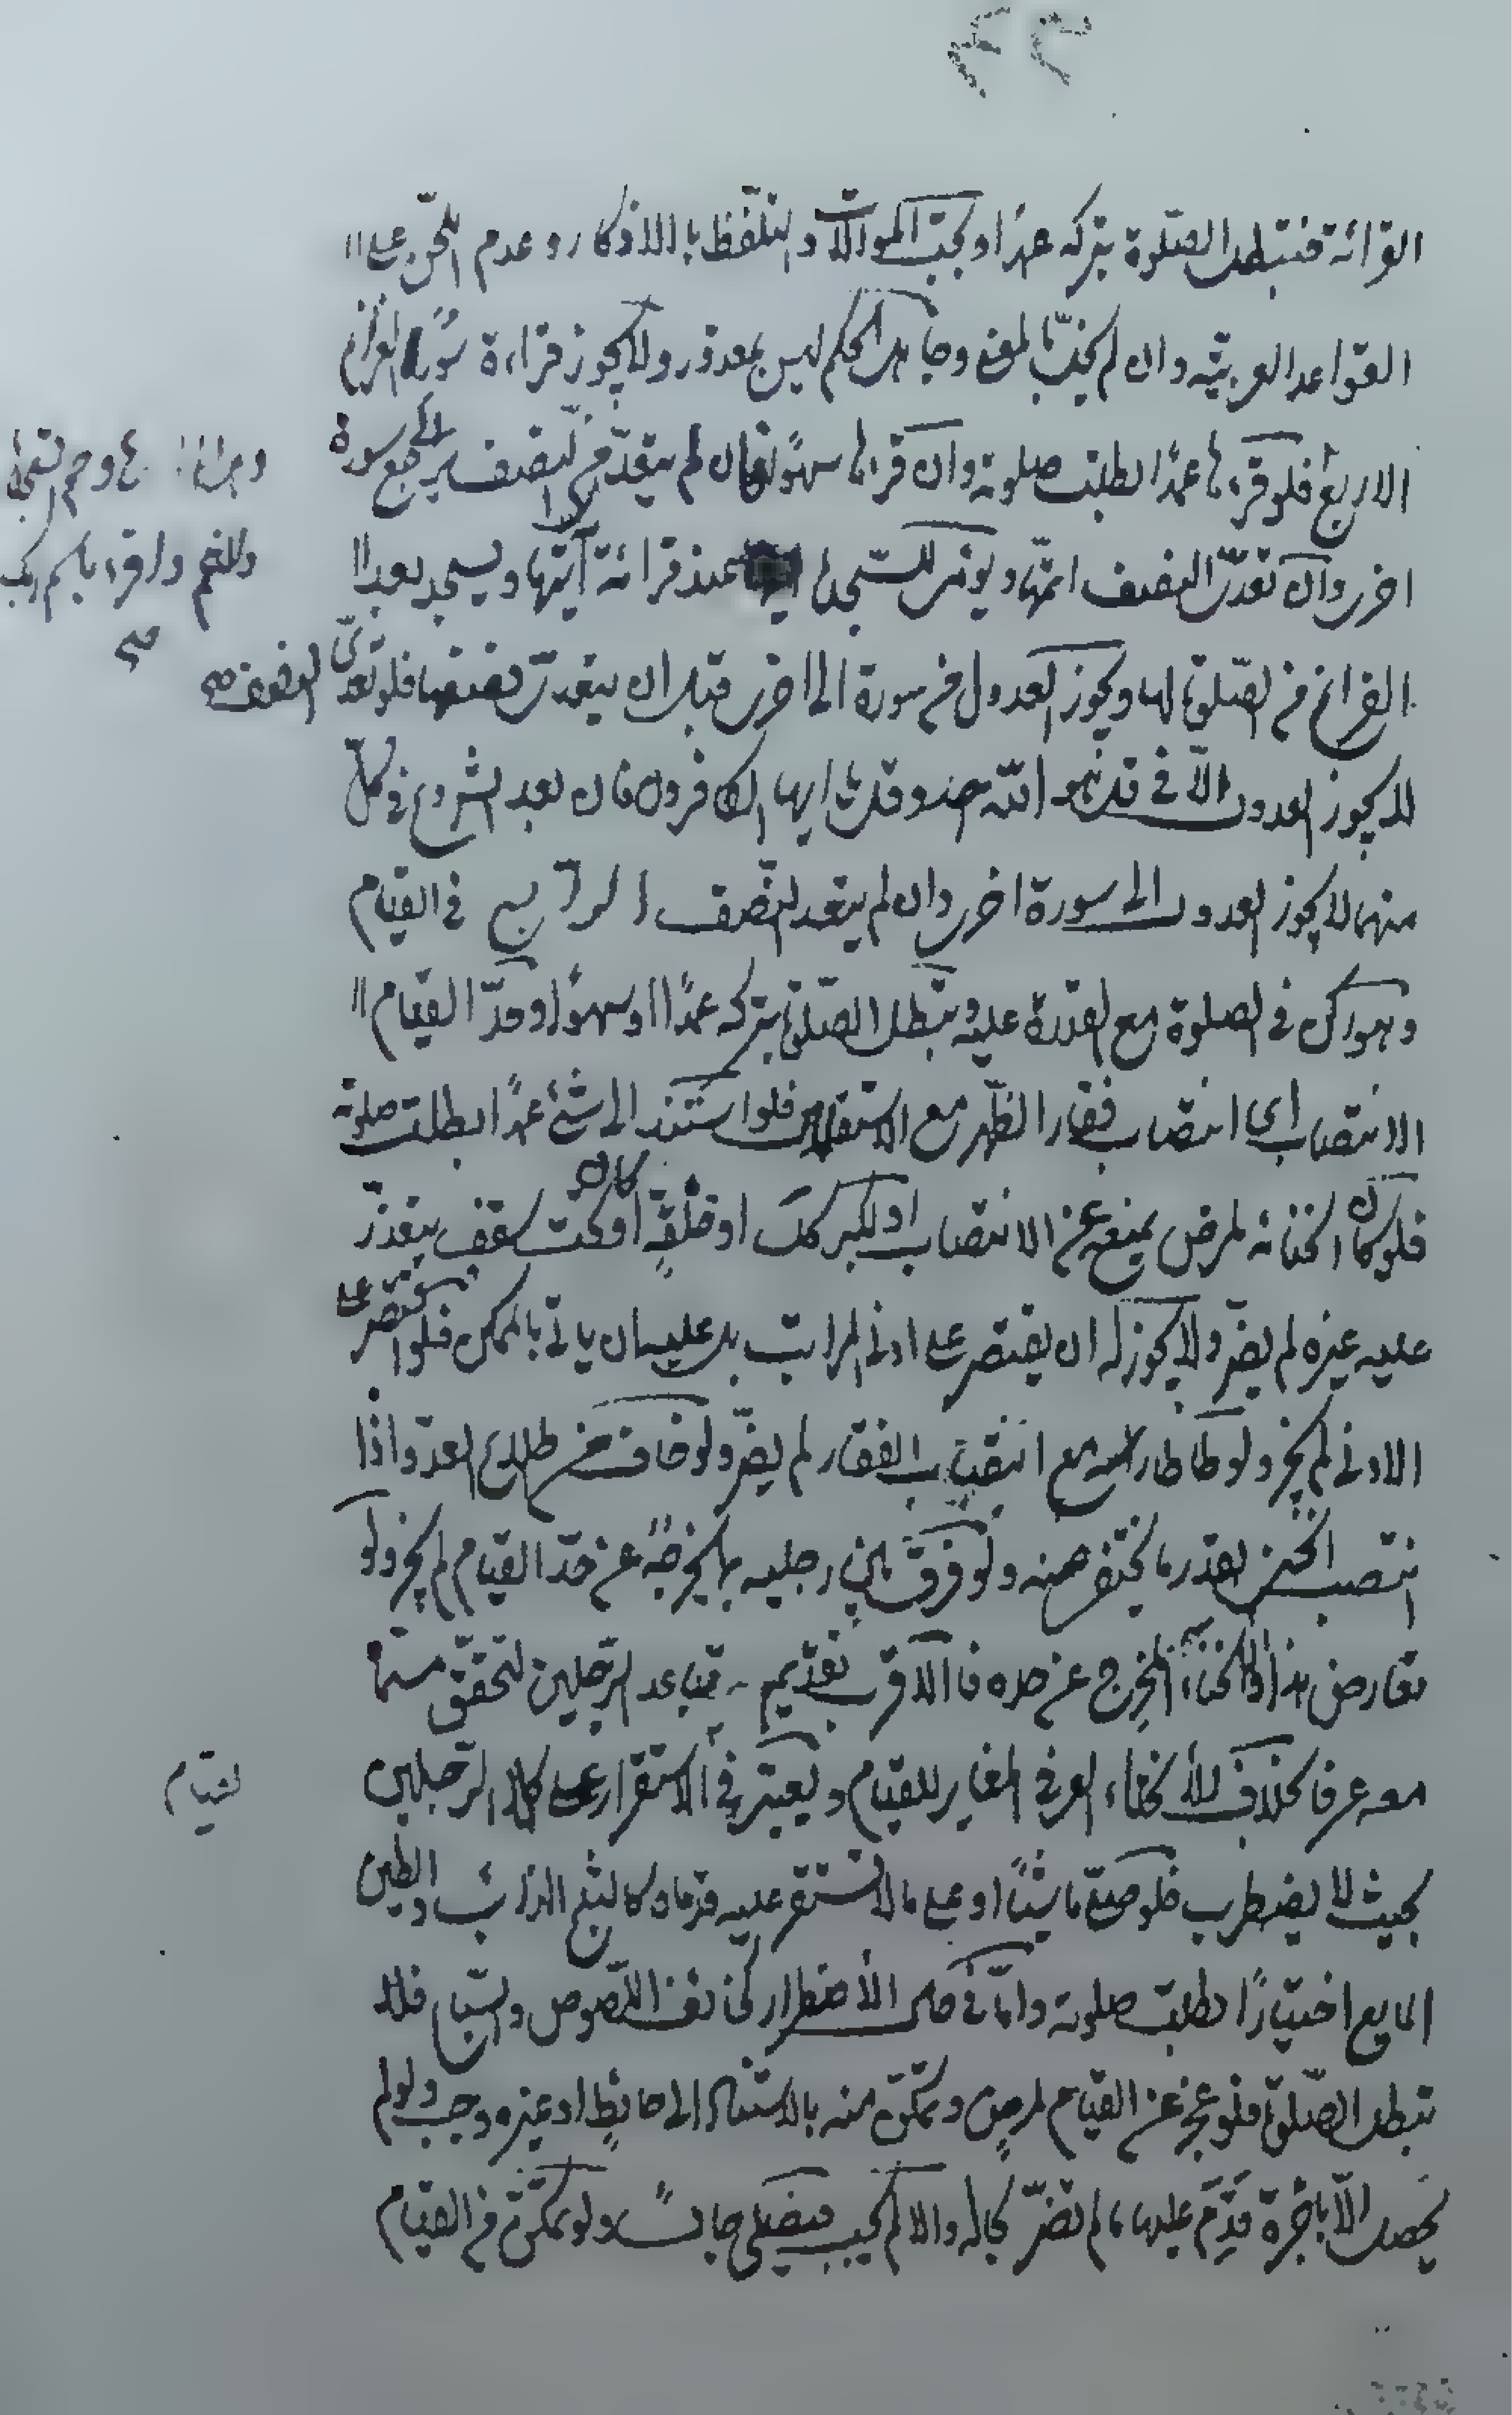 القرائة فتبطل الصلوة بتركه عمدًا ويجب الموالات والتلفظ بالاذكار وعدم اللحن على
القواعد العربية وان لم يخلّ بالمعنى وجاهل الحكم ليس بمعذور ولا يجوز قراءة سور العزائم
الاربع فلو قرءها عمدًا بطلت صلوته وان قرءها سهوًا فان لم يتعدّ من النصف يرجع الى سورة
اخرى وان تعدّى النصف اتمّها ويومى للسجدة عند قرائة آيتها ويسجد بعد
الفراغ من الصلوة لها ويجوز العدول من سورة الى اخرى قبل ان يتعدى نصفها فلو تعدّى النصف صح
لا يجوز العدول الّا في قل هو الله احد وقل يا ايها الكافرون فان بعد الشروع في كلّ
منهما لا يجوز العدول الى سورة اخرى وان لم يتعد النصف الرابع في القيام
وهو ركن في الصلوة مع القدرة عليه وتبطل الصلوة بتركه عمدًا او سهوًا وحدّ القيام
الانتصاب اى انتصاب فقار الظهر مع الاستقلال فلو استند الى شئ عمدًا بطلت صلوته
فلو كان انحنائه لمرض يمنعه عن الانتصاب او لكبر كك او خلقةٍ او كان تحت سقف يتعذّر
عليه غيره لم يضرّ ولا يجوز له ان يقتصر على ادنى المراتب بل عليه ان ياتى بالممكن فلو اقتصر على
الادنى لم يجز ولو طاطا راسه مع انتصاب الفقار لم يضرّ ولو خاف من اطلاع العدو اذا
انتصب انحنى بقدر ما يختفى منه ولو فرق بين رجليه بما يخرجه عن حدّ القيام لم يجز ولو
تعارض هذا والانحناء المخرج عن حده فالاقرب تقديم تباعد الرّجلين لتحقق مسمّاه
معه عرفا بخلاف الانحناء العرفى المغاير للقيام ويعتبر في الاستقرار على كلا الرّجلين
لقيام
بحيث لا يضطرب فلو صلّى ماشيًا او على ما لا تستقر عليه قدماه كالثلج الذائب والطين
المايع اختيارًا بطلت صلوته وامّا في حال الاضطرار كخائف اللّصوص والسّباع فلا
تبطل الصّلوة فلو عجز عن القيام لمرضٍ وتمكّن منه بالاستناد الى حائطٍ او غيره وجب ولو لم
يحصل الّا باجرة قدّم عليها ما لم تضرّ بحاله والا لم يجب فيصلى جالسًا ولو تمكّن من القيام